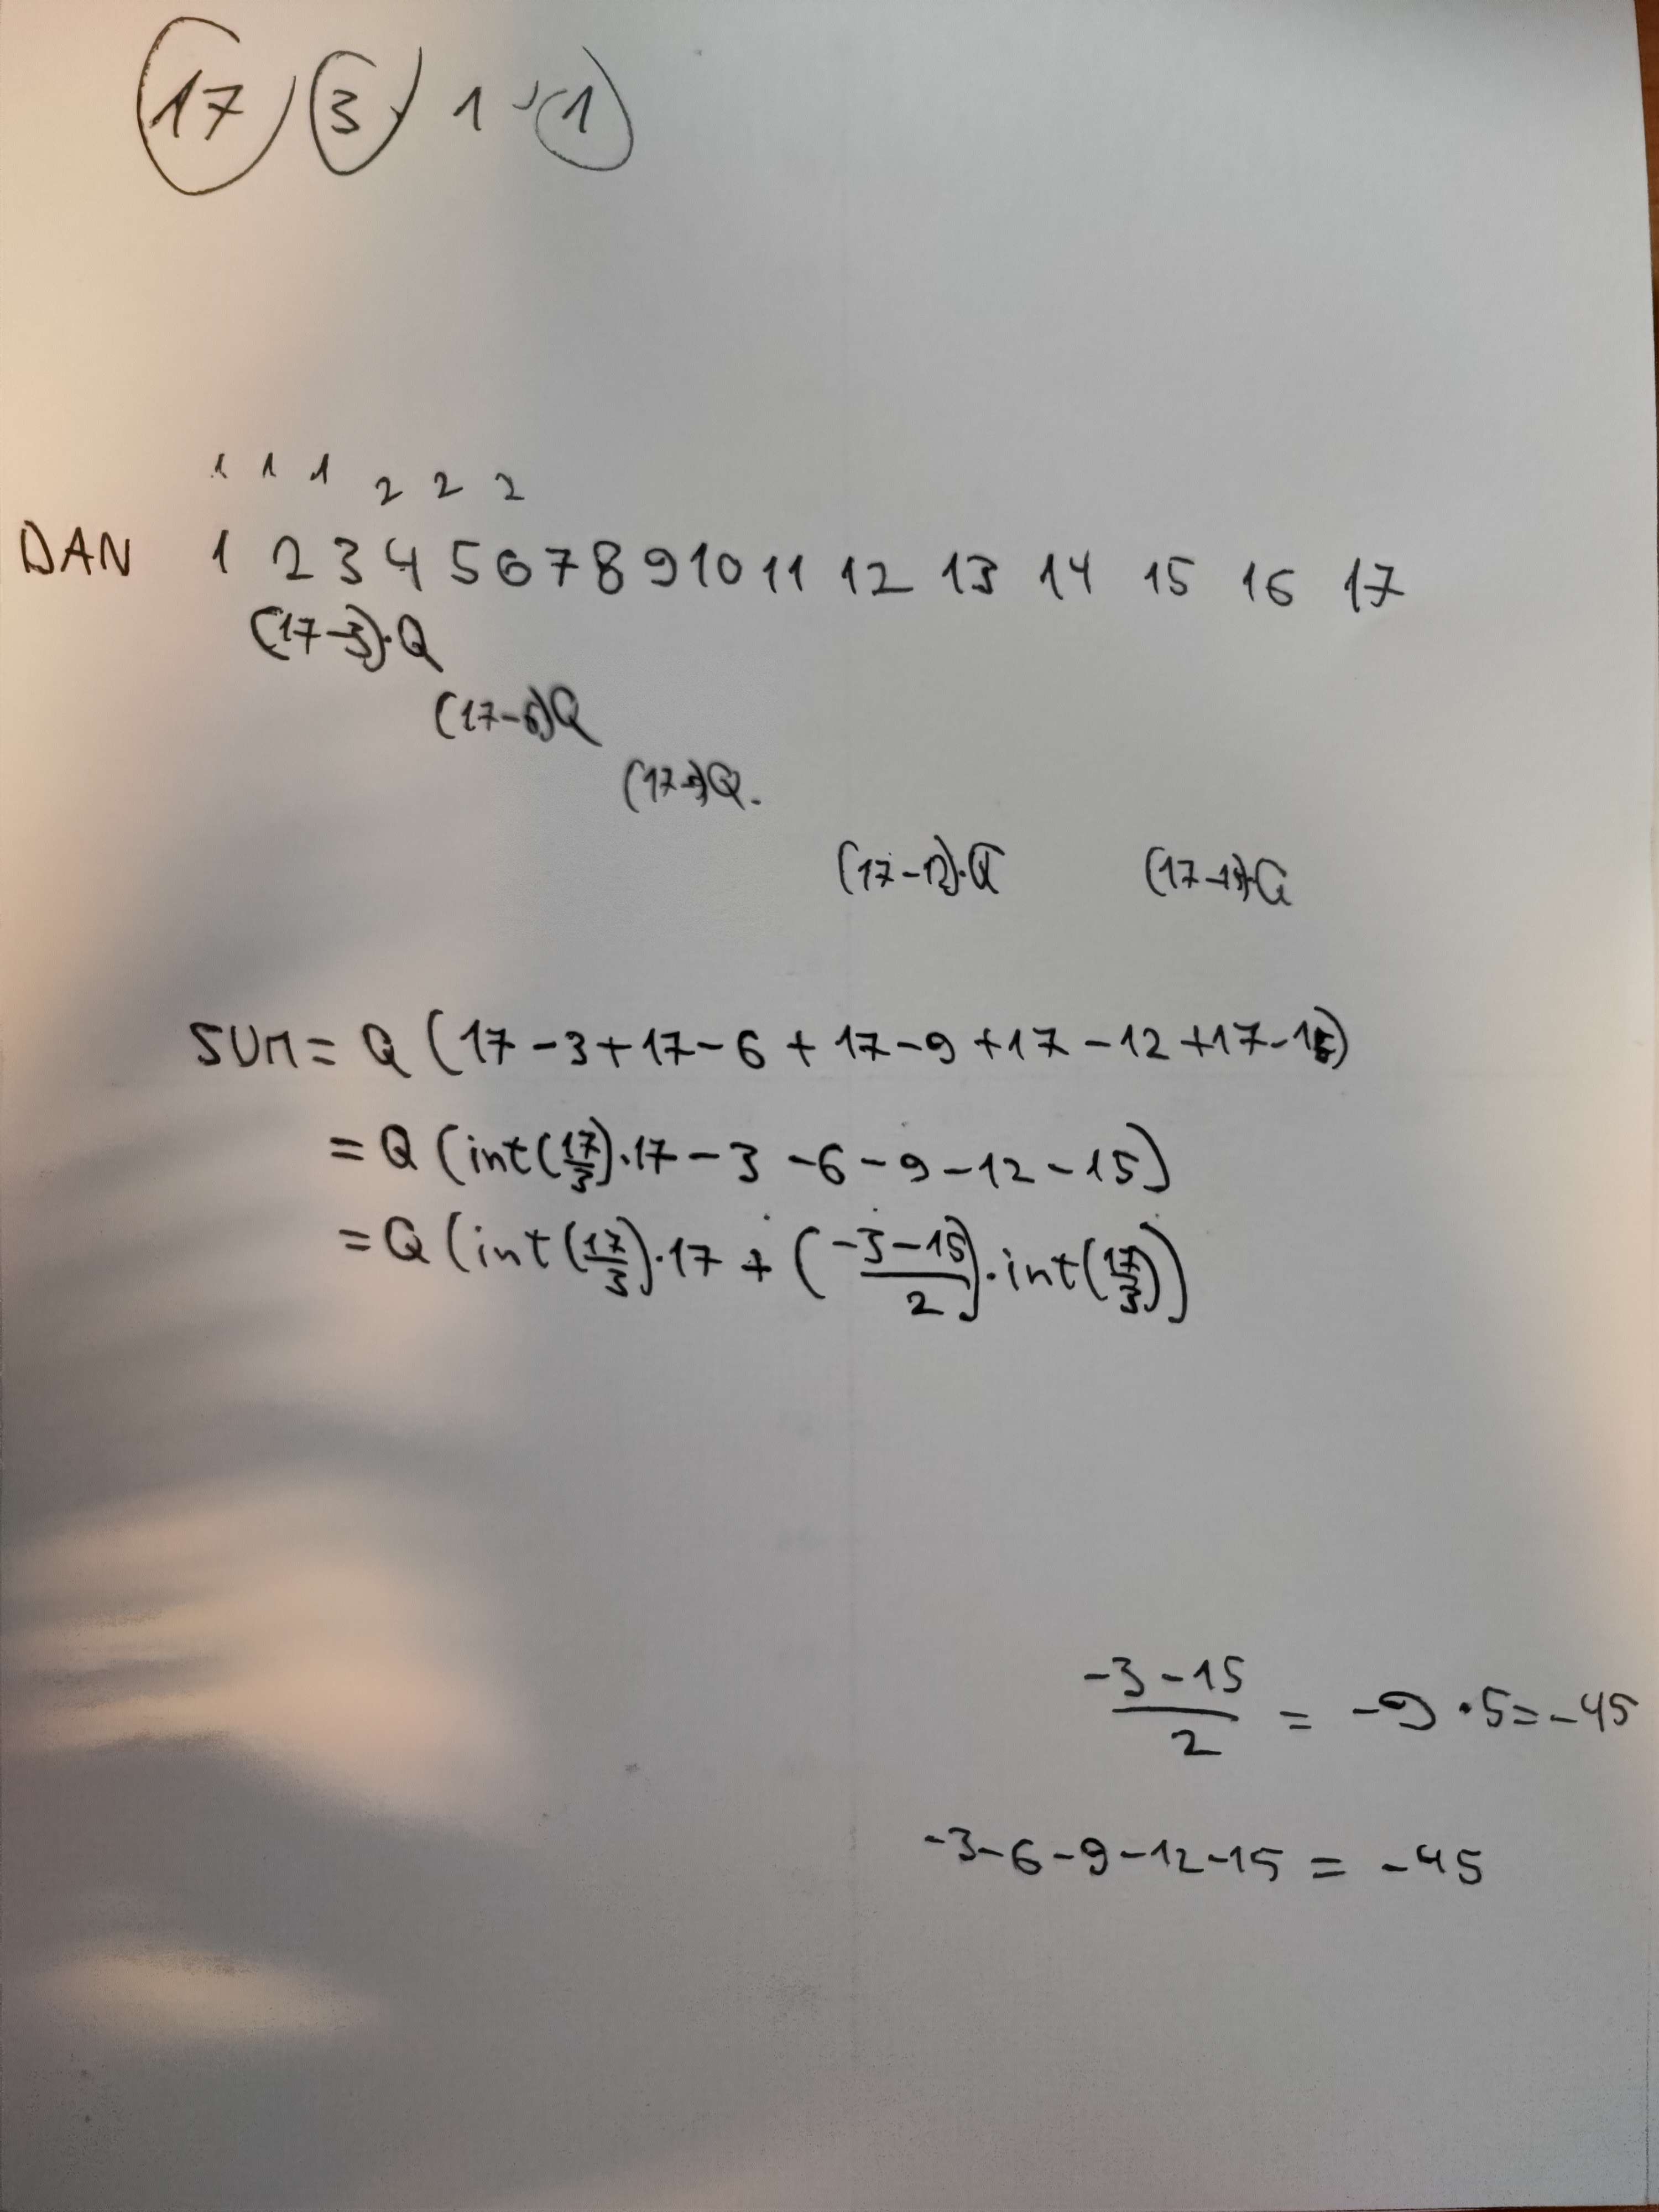 17, 3, 1, 1
1 1 1 2 2 2
DAN 1 2 3 4 5 6 7 8 9 10 11 12 13 14 15 16 17
(17-3)·Q
(17-6)Q
(17-9)Q.
(17-12)·Q (17-15)·Q
SUM = Q (17-3+17-6+17-9+17-12+17-15)
= Q (int(17/3)·17-3-6-9-12-15)
= Q (int(17/3)·17 + (-3-15/2)·int(17/3))
-3-15/2 = -9·5=-45
-3-6-9-12-15 = -45